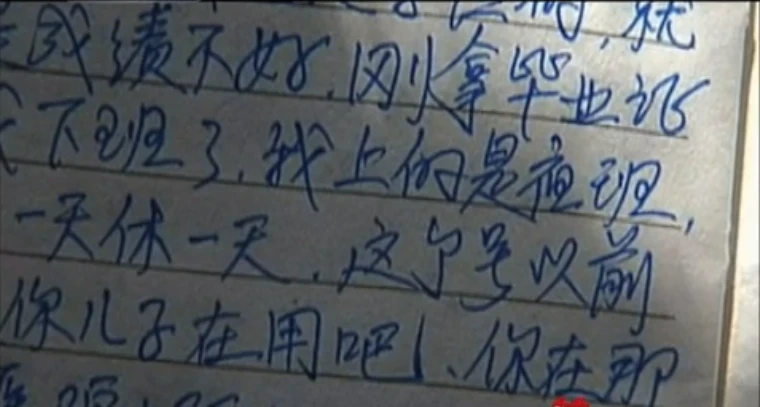 就
成绩不好,刚拿毕业证
下班了,我上的是夜班,
一天休一天,这个号以前
你儿子在用吧!、你在那